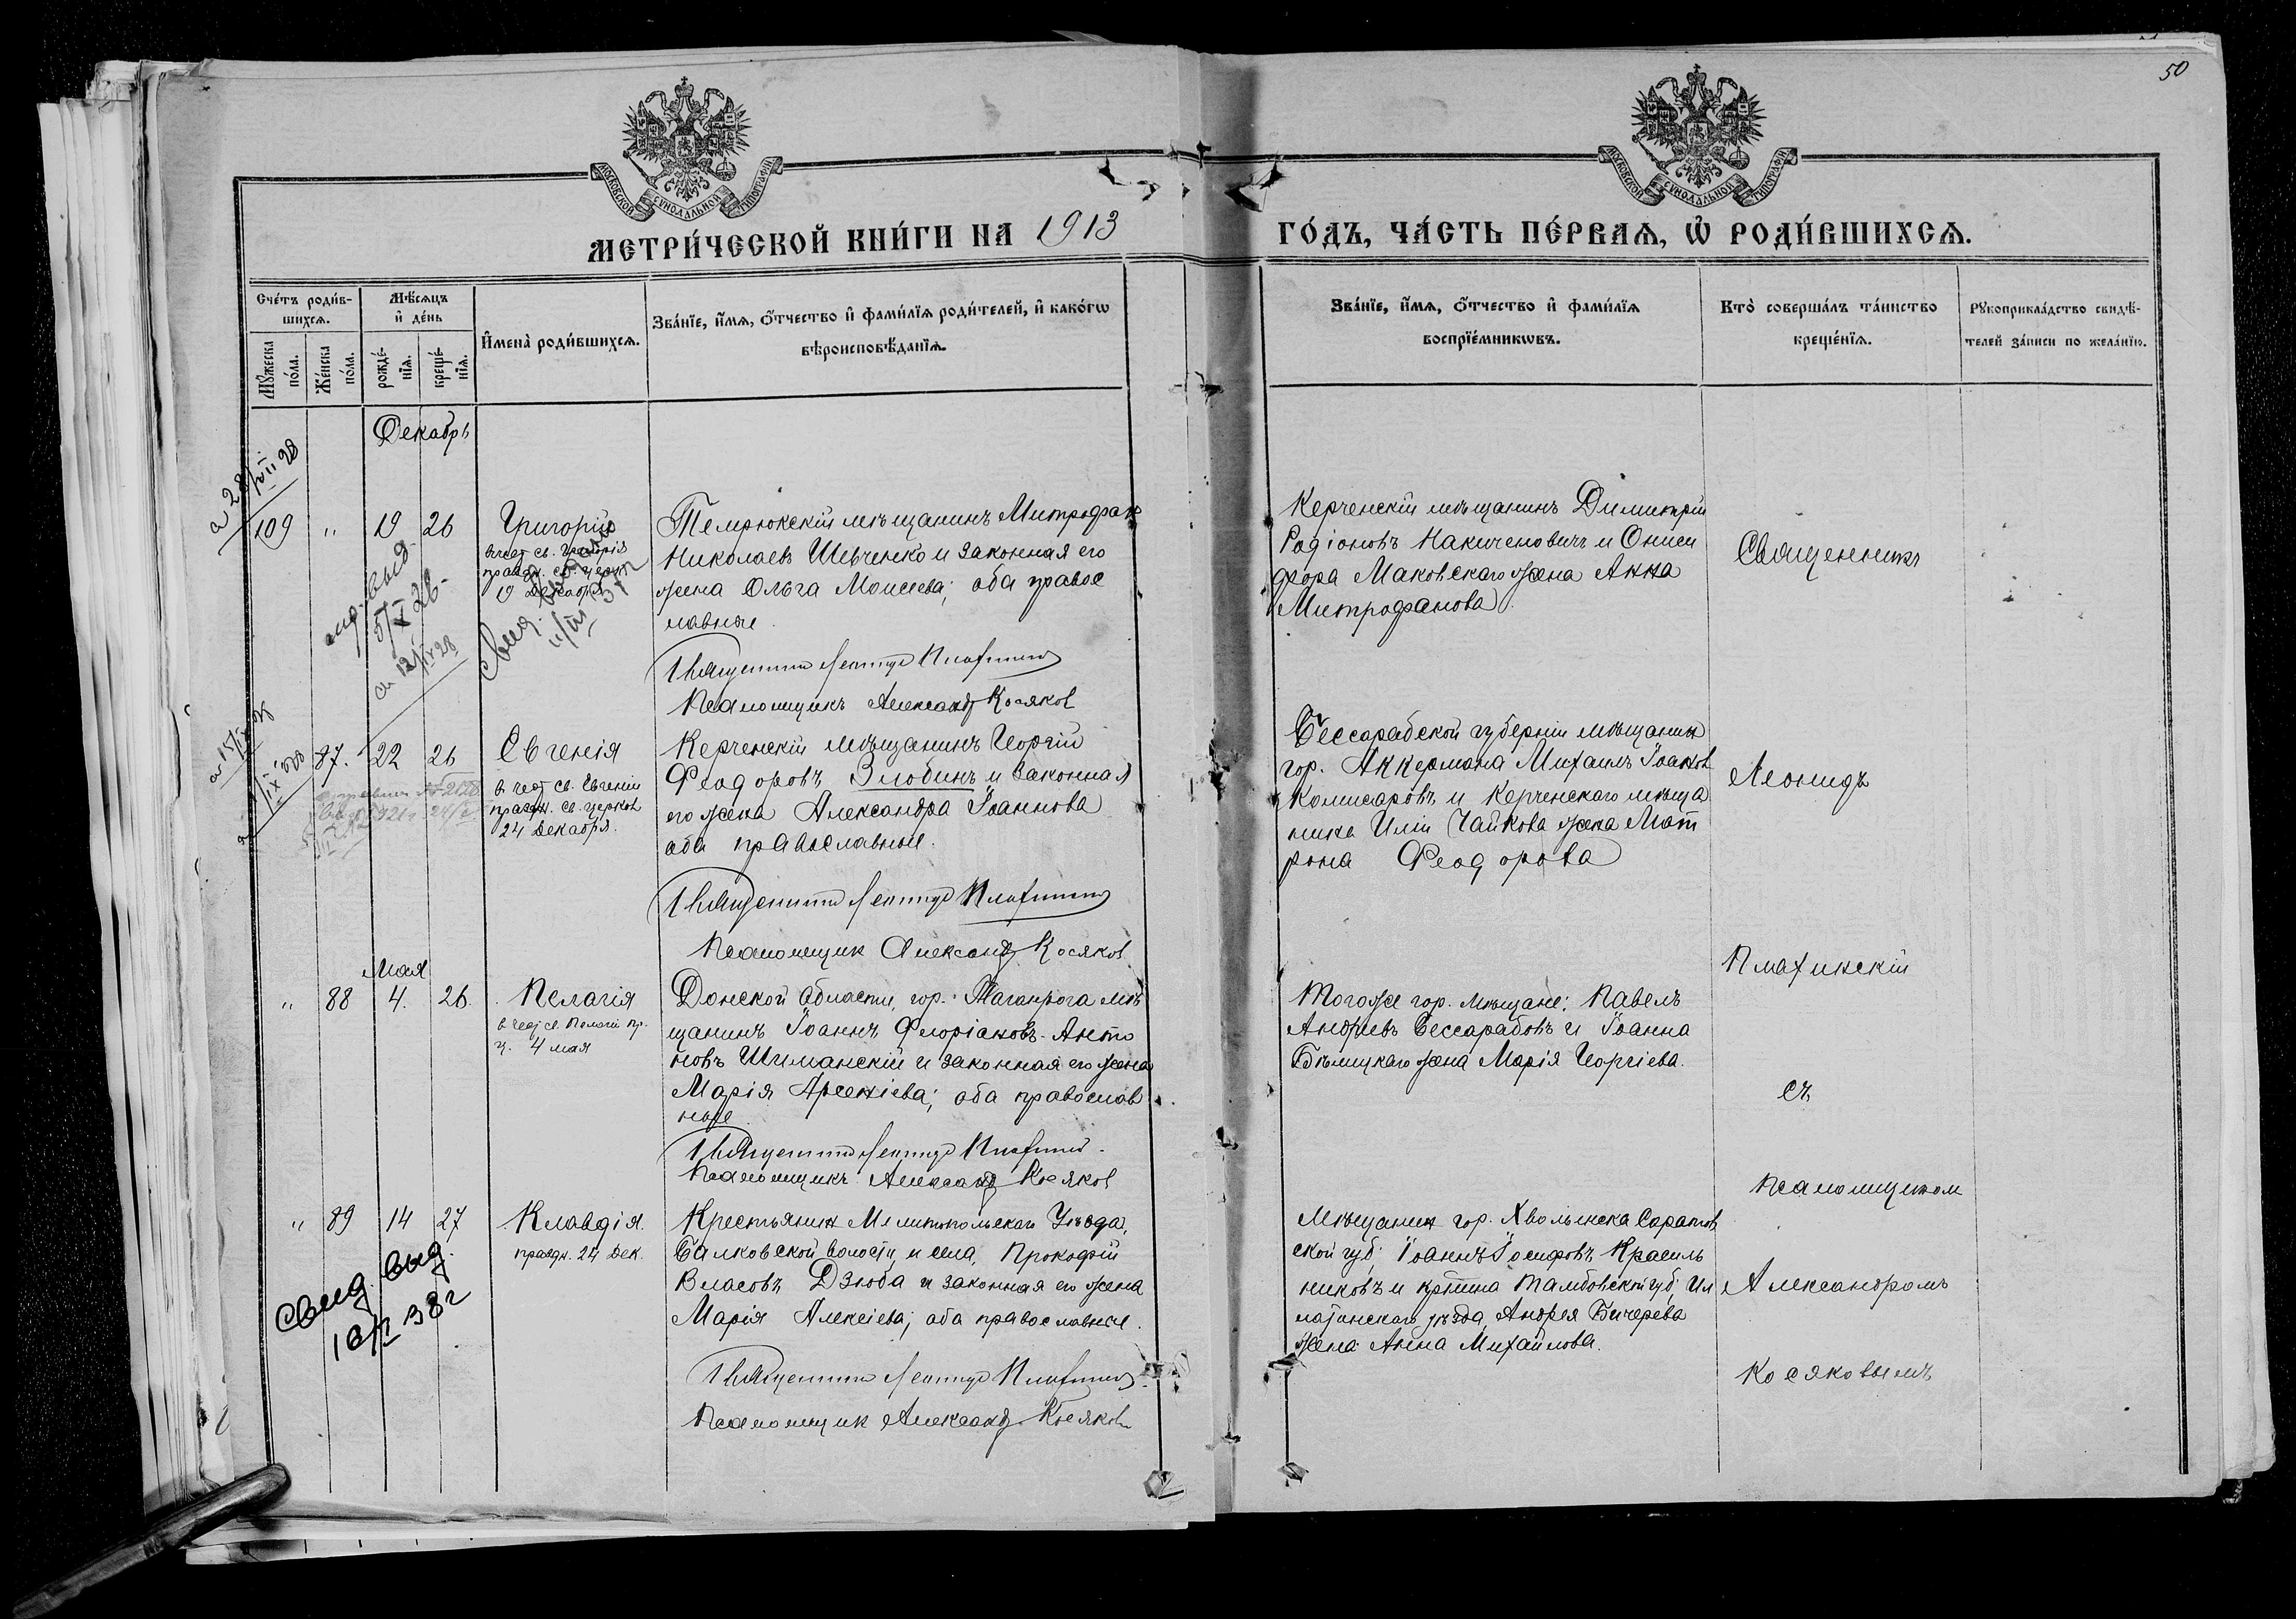 50
МОСКОВСКОЙ СѴНОДАЛЬНОЙ ТИПОГРАФІИ
МОСКОВСКОЙ СѴНОДАЛЬНОЙ ТИПОГРАФІИ
МЕТРИ́ЧЕСКОЙ КНИ́ГИ НА 1913 ГО́ДЪ, ЧА́СТЬ ПЕ́РВАѦ, Ѡ҆ РОДИ́ВШИХСѦ.
Сче́тъ роди́в-
шихсѧ.
Мꙋ́жеска по́ла.
Же́нска по́ла.
Мѣ́сѧцъ
и҆ де́нь
рожде́-
нїѧ.
креще́-
нїѧ.
И҆мена̀ роди́вшихсѧ.
Зва́нїе, и҆́мѧ, ѻ҆́тчество и҆ фами́лїѧ роди́телей, и҆ како́гѡ
вѣроисповѣ́данїѧ.
Зва́нїе, и҆́мѧ, ѻ҆́тчество и҆ фами́лїѧ
воспрїе́мникѡвъ.
Кто̀ соверша́лъ та́инство
креще́нїѧ.
Рꙋкоприкла́дство свидѣ́-
телей за́писи по жела́нїю.
Декабрь
109 " 19 26
Григорій
в чест св. Григорія
праздн. св. церк.
19 Декабря
Темрюкскій мѣщанинъ Митрофан
Николаевъ Шевченко и законная его
жена Ольга Моисеева; оба правос
лавные.
Священникъ Леонидъ Плахинскій
Псаломщикъ Александр Косяков
Керченскій мѣщанинъ Димитрій
Родіоновъ Накиченовичъ и Ониси
фора Маковскаго жена Анна
Митрофанова.
Священникъ
87. 22 26
Евгенія
в чест св. Евгеніи
праздн. св. церков
24 Декабря.
Керченскій мѣщанинъ Георгій
Феодоровъ Злобинъ и законная
его жена Александра Іоаннова
оба православные.
Священникъ Леонидъ Плахинскій
Псаломщик Александр Косяков
Бессарабской губерніи мѣщанин
гор. Аккермана Михаилъ Іоанов
Комисаровъ и Керченскаго мѣща
нина Иліи Чайкова жена Мат
рона Феодорова
Леонидъ
Мая
" 88 4. 26.
Пелагія
в чест св. Пелагіи пр.
ц. 4 мая
Донской области, гор. Таганрога мѣ
щанинъ Іоаннъ Флоріановъ-Анто
новъ Шиманскій и законная его жена
Марія Арсеніева; оба православ
ные.
Священникъ Леонидъ Плахинскій.
Псаломщикъ Александр Косяков
Тогоже гор. мѣщане: Павелъ
Андреевъ Бессарабовъ и Іоанна
Бѣлицкаго жена Марія Георгіева.
Плахинскій
съ
" 89 14 27
Клавдія.
праздн. 24 Дек.
Крестьянин Мелитопольскаго Уѣзда,
Балковской волости и села, Прокофій
Власовъ Дзюба и законная его жена
Марія Алексіева; оба православные.
Священникъ Леонидъ Плахинскій
Псаломщик Александр Косяковъ
Мѣщанин гор. Хволынска Саратов
ской губ; Іоаннъ Іосифовъ Красиль
никовъ и крстина Тамбовской губ;
уѣзда, Андрея Бичерева
жена Анна Михайлова.
Псаломщиком
Александромъ
Косяковымъ
свид. выд.